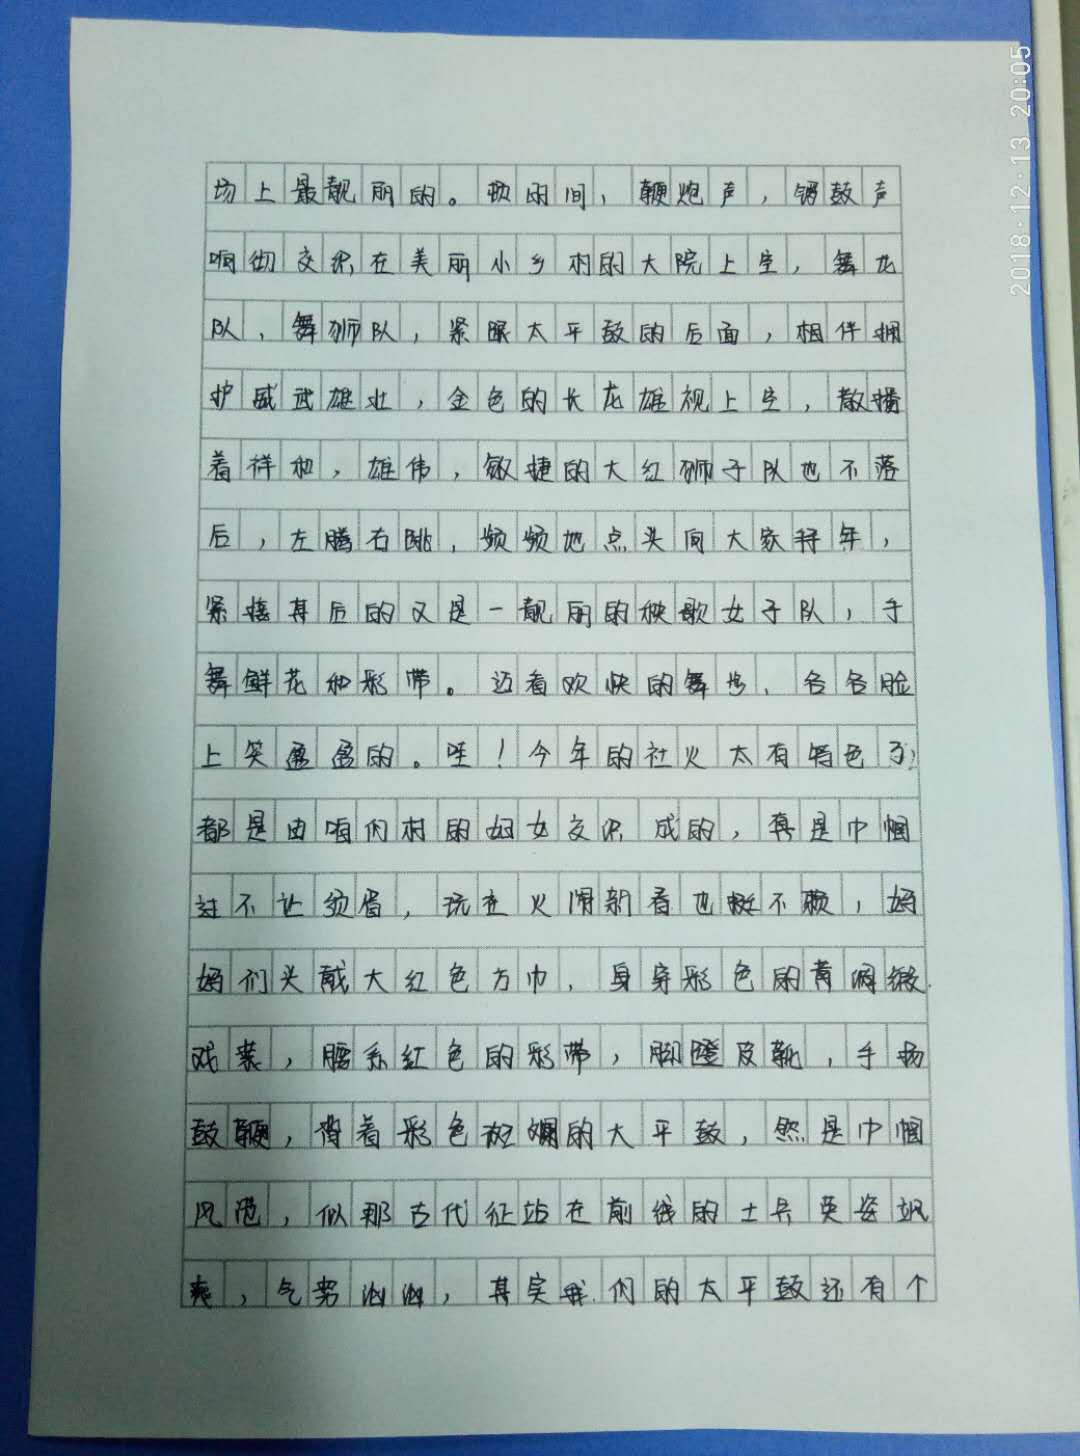 场上最靓丽的。顿时间，鞭炮声，锣鼓声
响彻交织在美丽小乡村的大院上空，舞龙
队、舞狮队，紧跟太平鼓的后面，相伴拥
护威武雄壮，金色的长龙雄视上空，散播
着祥和，雄伟，敏捷的大红狮子队也不落
后，左腾右跳，频频地点头向大家拜年，
紧接其后的又是一靓丽的秧歌女子队，手
舞鲜花和彩带。迈着欢快的舞步、各各脸
上笑盈盈的。哇！今年的社火太有特色了，
都是由咱们村的妇女交织成的，真是巾帼
不让须眉，玩社火闹新春也挺不赖，妈
妈们头戴大红色方巾、身穿彩色的黄绸缎
戏装，腰系红色的彩带，脚蹬皮靴，手扬
鼓鞭，背着彩色斑斓的大平鼓，然是巾帼
风范，似那古代征站在前线的士兵英姿飒
爽，气势汹汹，其实我们的太平鼓还有个
2018·12·13 20:05